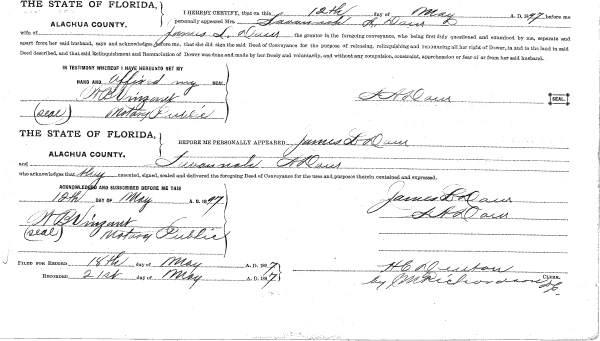 THE STATE OF FLORIDA,
ALACHUA COUNTY.
I HEREBY CERTIFY, that on this 12th day of May A. D. 1897 before me
personally appeared Mrs. Savannah
wife of James L. the grantor in the foregoing conveyance, who being first duly questioned and examined by me, separate and
apart from her said husband, says and acknowledges before me, that she did sign the said Deed of Conveyance for the purpose of releasing, relinquishing and renouncing all her right of Dower, in and to the land in said
Deed described, and that said Relinquishment and Renunciation of Dower was done and made by her freely and voluntarily, and without any compulsion, constraint, apprehension or fear of or from her said husband.
IN TESTIMONY WHEREOF I HAVE HEREUNTO SET MY
HAND AND affixed my SEAL
W B Vinzant
(seal) Notary Public
SEAL.
THE STATE OF FLORIDA,
ALACHUA COUNTY.
BEFORE ME PERSONALLY APPEARED James L
and Savannah
who acknowledges that they executed, signed, sealed and delivered the foregoing Deed of Conveyance for the uses and purposes therein contained and expressed.
ACKNOWLEDGED AND SUBSCRIBED BEFORE ME THIS
12th DAY OF May A. D. 1897
W B Vinzant
(seal) Notary Public
James L
FILED FOR RECORD 18th day of May A. D. 1897
RECORDED 21st day of May A. D. 1897
H C Denton CLERK.
by Richardson